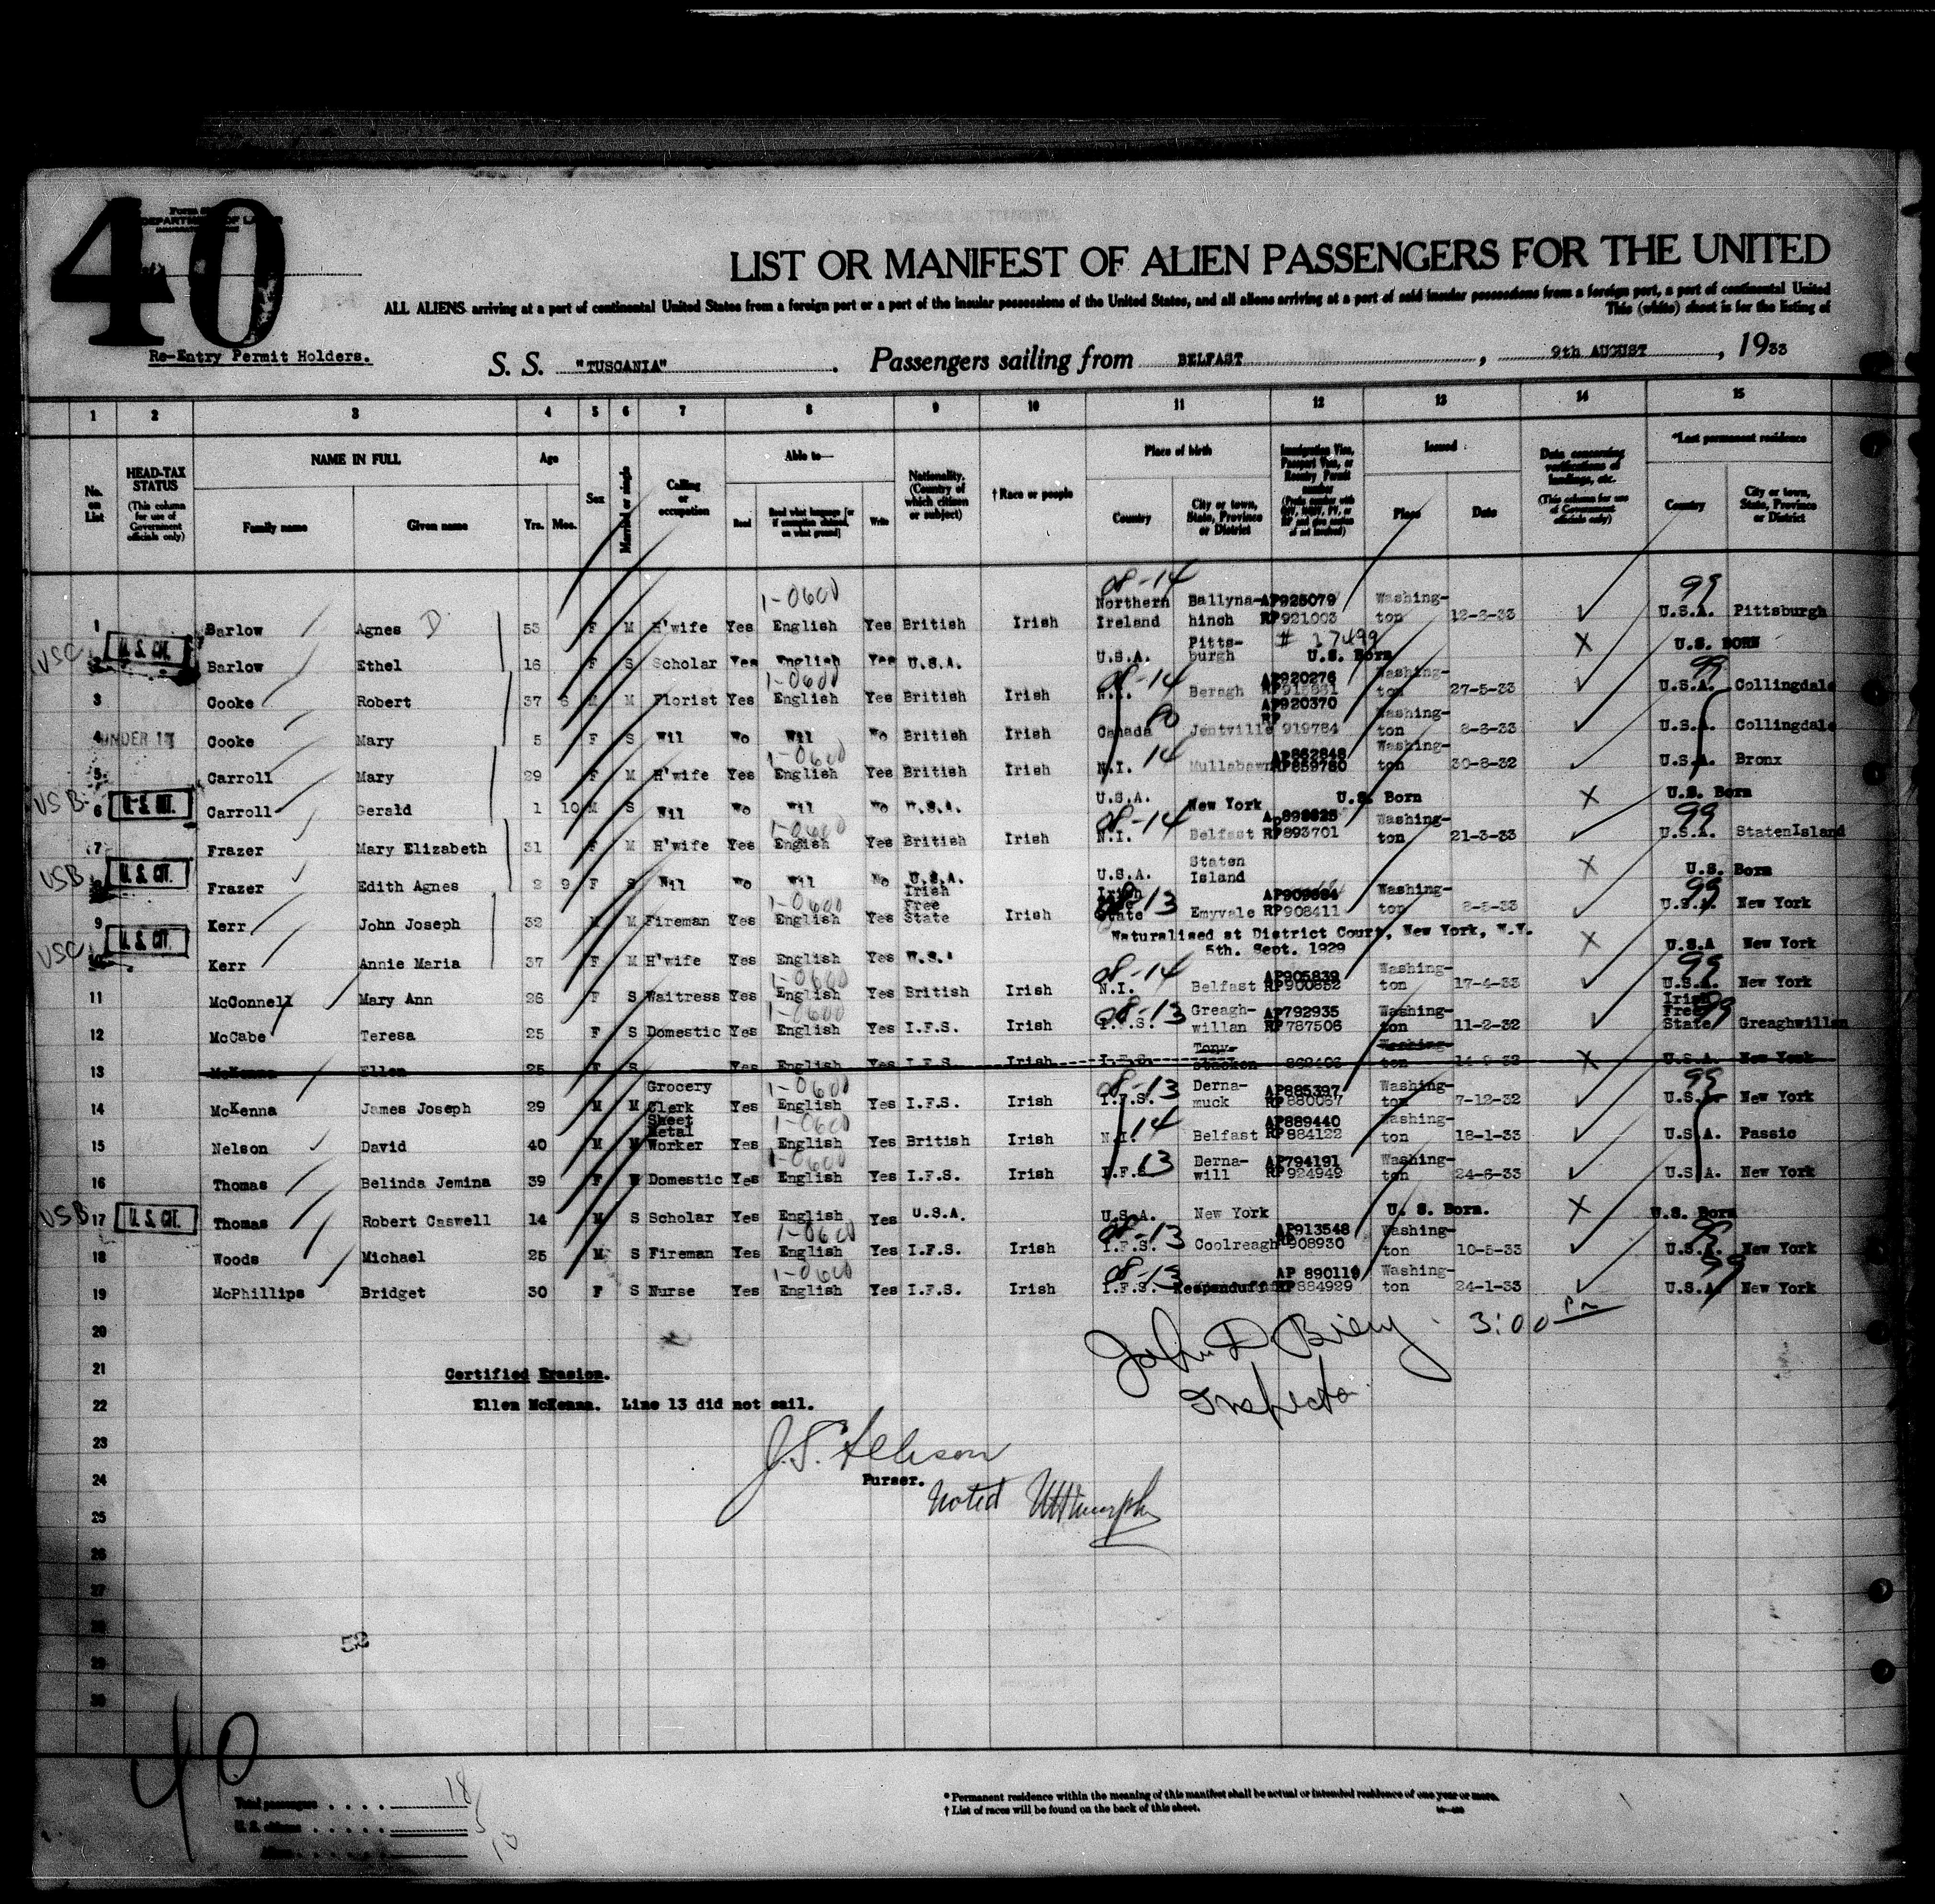 40
LIST OR MANIFEST OF ALIEN PASSENGERS FOR THE UNITED
ALL ALIENS arriving at a port of continental United States from a foreign port or a port of the insular possessions of the United States, and all aliens arriving at a port of said insular possessions from a foreign port, a port of continental United
This (white) sheet is for the listing of
Re-Entry Permit Holders.
S. S. "TUSCANIA" . Passengers sailing from BELFAST , 9th AUGUST , 1933
1 2 3 4 5 6 7 8 9 10 11 12 13 14 15
No. on List
HEAD-TAX STATUS (This column for use of Government officials only)
NAME IN FULL Family name Given name
Age Yrs. Mos.
Sex
Married or single
Calling or occupation
Able to— Read Read what language [or if exemption claimed, on what ground] Write
Nationality. (Country of which citizen or subject)
† Race or people
Place of birth Country City or town, State, Province or District
Immigration Visa, Passport Visa, or Reentry Permit number
Issued Place Date
Data concerning verifications of landings, etc. (This column for use of Government officials only)
*Last permanent residence Country City or town, State, Province or District
1 Barlow Agnes D 53 F M H'wife Yes English 1-0600 Yes British Irish Northern Ireland 08-14 Ballyna-hinch AP925079 RP921003 Washing-ton 12-6-33 99 U.S.A. Pittsburgh
USC U. S. CIT. 2 Barlow Ethel 16 F S Scholar Yes English Yes U.S.A. U.S.A. Pitts-burgh # 17499 U.S. Born X U.S. BORN
3 Cooke Robert 37 M M Florist Yes English 1-0600 Yes British Irish N.I. 08-14 Beragh AP920276 Washing-ton 27-5-33 99 U.S.A. Collingdale
4 UNDER 16 Cooke Mary 5 F S Nil No Nil No British Irish Canada Jentville AP920370 RP 919784 Washing-ton 8-6-33 U.S.A. Collingdale
5 Carroll Mary 29 F M H'wife Yes English 1-0600 Yes British Irish N.I. 14 Mullabawn AP862848 RP859780 Washing-ton 30-8-32 U.S.A. Bronx
USB U. S. CIT. 6 Carroll Gerald 1 10 M S Nil No Nil No U.S.A. U.S.A. New York U.S. Born X U.S. Born
7 Frazer Mary Elizabeth 31 F M H'wife Yes English 1-0600 Yes British Irish N.I. 08-14 Belfast RP893701 Washing-ton 21-3-33 99 U.S.A. StatenIsland
USB U. S. CIT. 8 Frazer Edith Agnes 2 9 F S Nil No Nil No U.S.A. U.S.A. Staten Island X U.S. Born
9 Kerr John Joseph 32 M M Fireman Yes English 1-0600 Yes Irish Free State Irish Irish Free State 08-13 Emyvale AP909684 RP908411 Washing-ton 8-5-33 99 U.S.A. New York
USC U. S. CIT. 10 Kerr Annie Maria 37 F M H'wife Yes English Yes U.S. Naturalised at District Court, New York, N.Y. 5th. Sept. 1929 X U.S.A New York
11 McConnell Mary Ann 26 F S Waitress Yes English 1-0600 Yes British Irish N.I. 08-14 Belfast AP905839 RP900852 Washing-ton 17-4-33 99 U.S.A. New York
12 McCabe Teresa 25 F S Domestic Yes English 1-0600 Yes I.F.S. Irish I.F.S. 08-13 Greagh-willan AP792935 RP787506 Washing-ton 11-2-32 Irish Free State 99 Greaghwillan
13 McKenna Ellen 25 F S Yes English Yes I.F.S. Irish I.F.S. Tony-stackon 862406 Washing-ton 14-9-32 X U.S.A. New York
14 McKenna James Joseph 29 M M Grocery Clerk Yes English 1-0600 Yes I.F.S. Irish I.F.S. 08-13 Derna-muck AP885397 RP880067 Washing-ton 7-12-32 99 U.S.A. New York
15 Nelson David 40 M M Sheet Metal Worker Yes English 1-0600 Yes British Irish N.I. 14 Belfast AP889440 RP884122 Washing-ton 18-1-33 U.S.A. Passic
16 Thomas Belinda Jemina 39 F W Domestic Yes English 1-0600 Yes I.F.S. Irish I.F.S. 13 Derna-will AP794191 RP924949 Washing-ton 24-6-33 U.S.A. New York
USB 17 U. S. CIT. Thomas Robert Caswell 14 M S Scholar Yes English Yes U.S.A. U.S.A. New York U. S. Born. X U.S. Born
18 Woods Michael 25 M S Fireman Yes English 1-0600 Yes I.F.S. Irish I.F.S. 08-13 Coolreagh AP913548 RP908930 Washing-ton 10-5-33 99 U.S.A. New York
19 McPhillips Bridget 30 F S Nurse Yes English 1-0600 Yes I.F.S. Irish I.F.S. 08-13 AP 890119 RP884929 Washing-ton 24-1-33 99 U.S.A. New York
20
John D Biery 3:00 Pm
21
Certified Erasion.
Inspector
22
Ellen McKenna. Line 13 did not sail.
23
24
Purser.
Noted
25
26
27
28
29
30
52
40
Total passengers . . . . 18
U. S. citizens . . . . . 5
Aliens . . . . . 13
* Permanent residence within the meaning of this manifest shall be actual or intended residence of one year or more.
† List of races will be found on the back of this sheet.